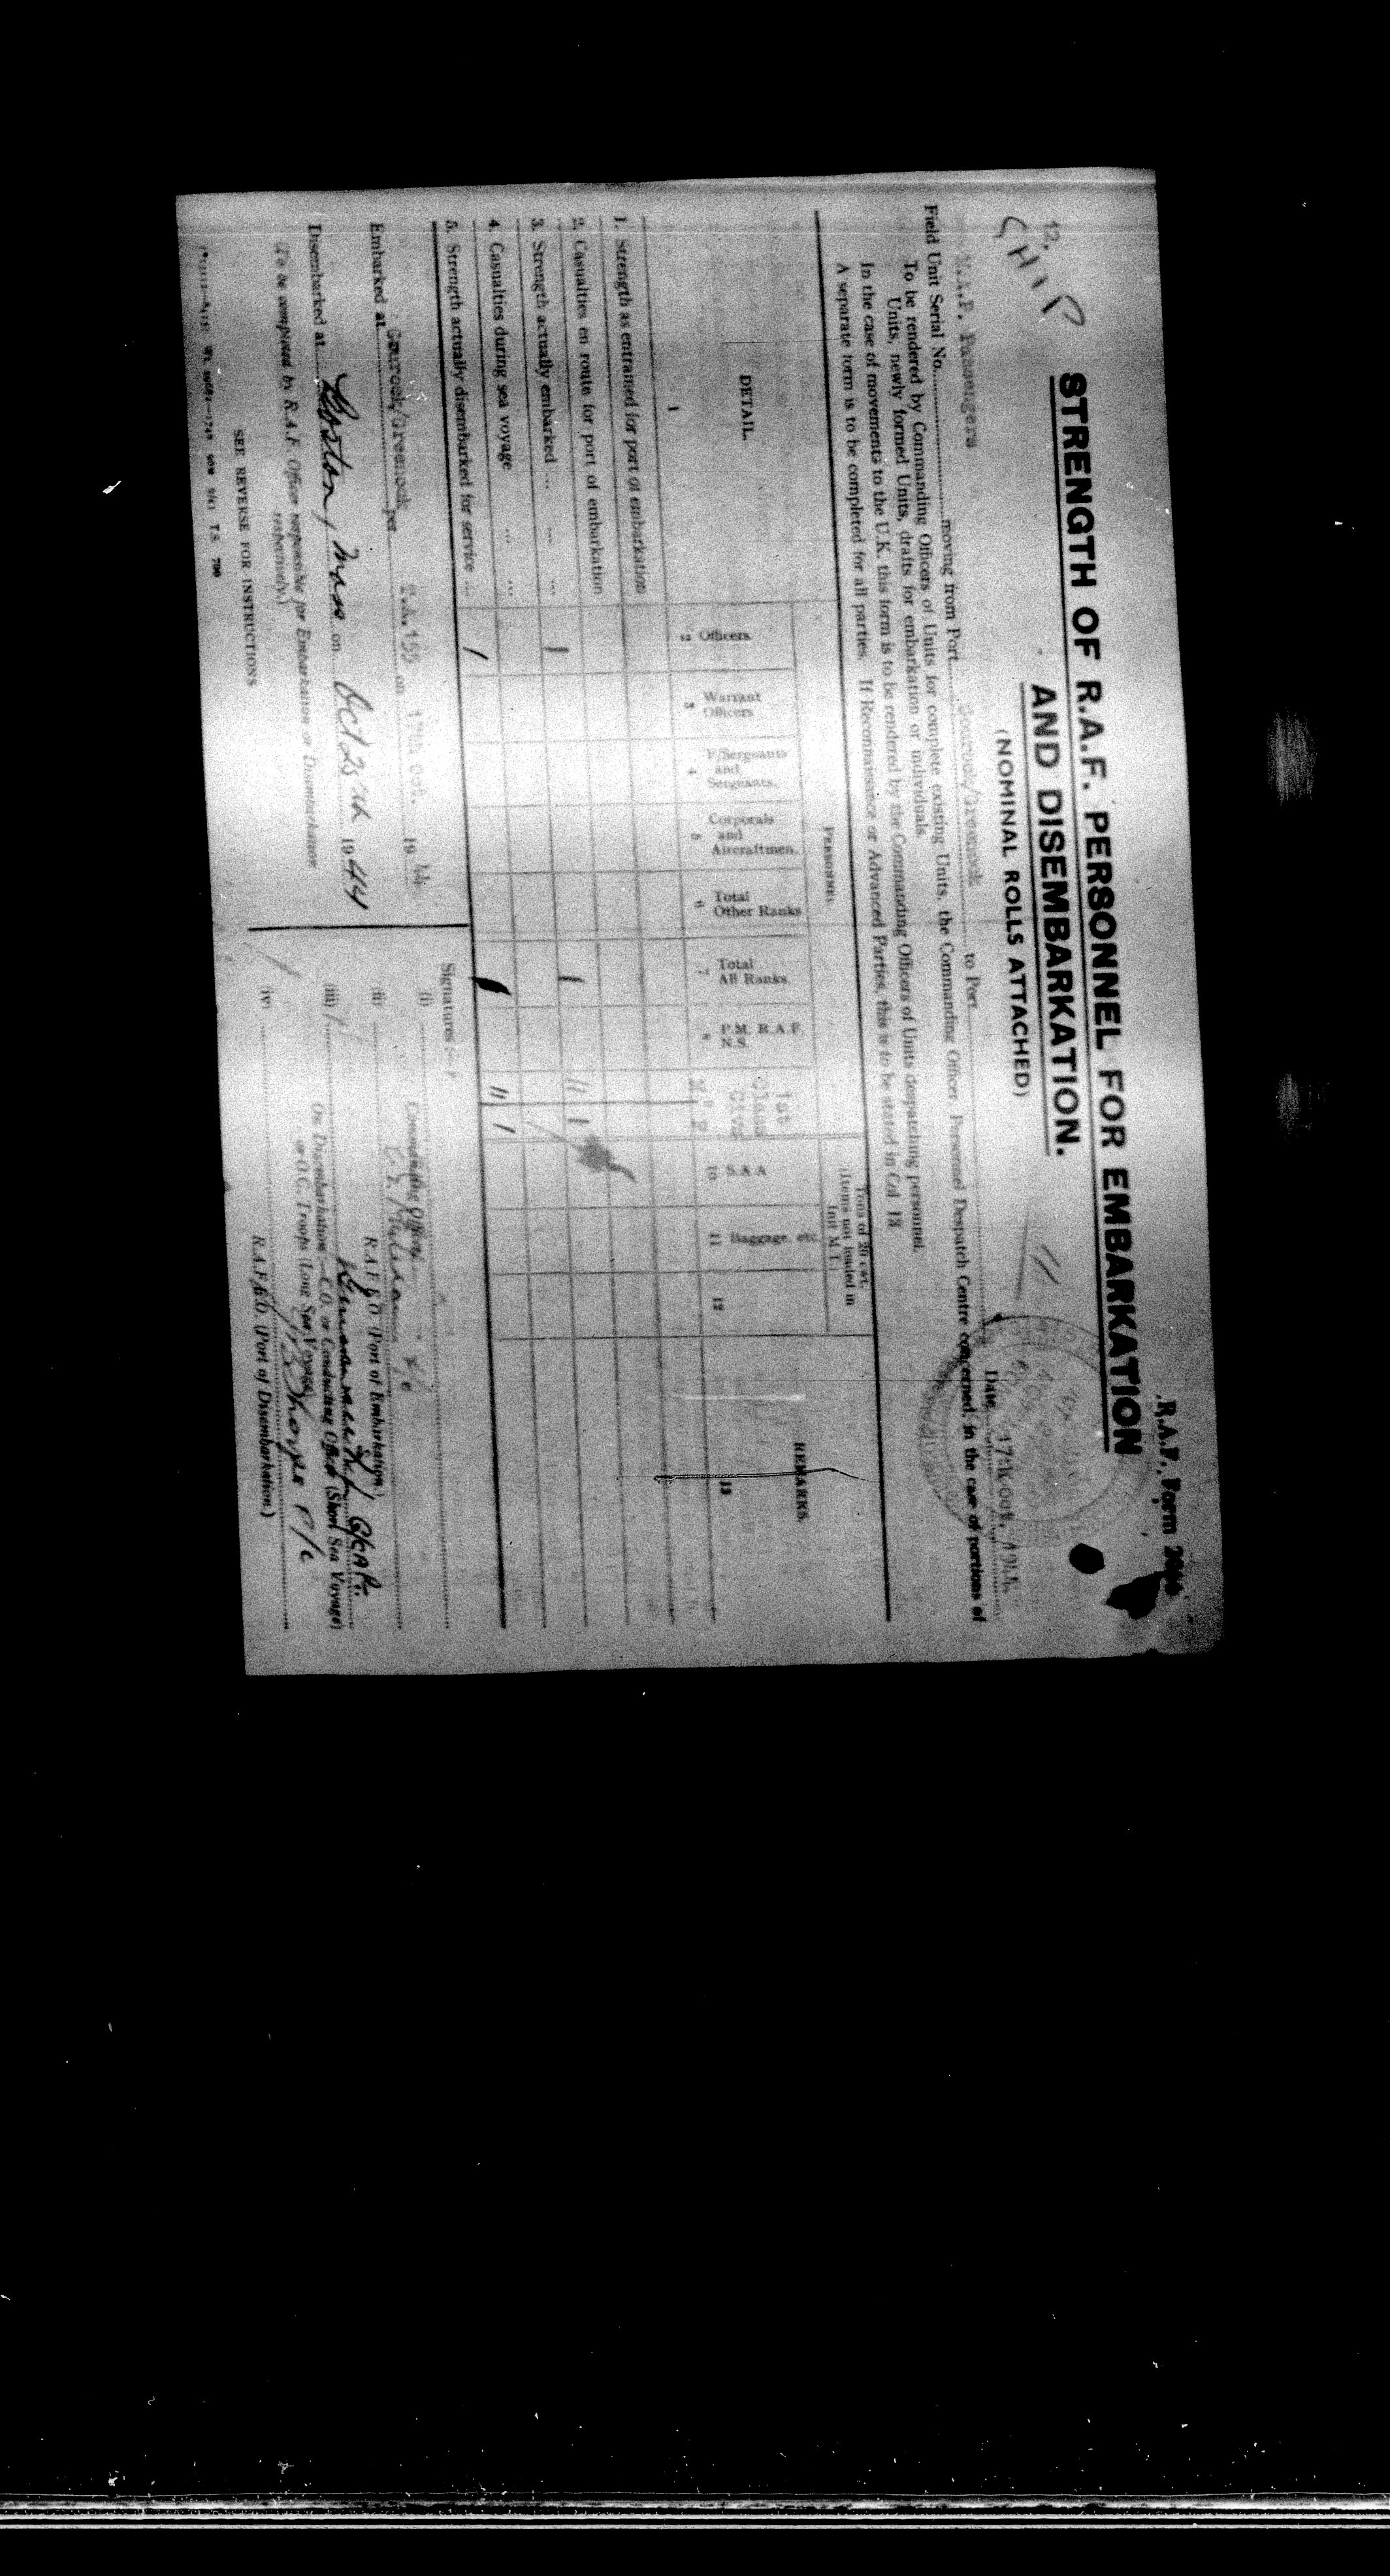 R.A.F. Form 2066
STRENGTH OF R.A.F. PERSONNEL FOR EMBARKATION
AND DISEMBARKATION.
(NOMINAL ROLLS ATTACHED)
12.
SHIP
11
Date 17th Oct. 1944.
R.A.F. Passengers
Field Unit Serial No. moving from Port Gourock/Greenock to Port
To be rendered by Commanding Officers of Units for complete existing Units, the Commanding Officer Personnel Despatch Centre concerned, in the case of portions of
Units, newly formed Units, drafts for embarkation or individuals.
In the case of movements to the U.K. this form is to be rendered by the Commanding Officers of Units despatching personnel.
A separate form is to be completed for all parties. If Reconnaissance or Advanced Parties, this is to be stated in Col. 13.
PERSONNEL
Tons of 20 cwt.
(Items not loaded in
Unit M.T.)
DETAIL.
Officers
Warrant
Officers
F/Sergeants
and
Sergeants.
Corporals
and
Aircraftmen.
Total
Other Ranks
Total
All Ranks
P.M. R.A.F.
N.S.
1st
Class
Civs
S.A.A
Baggage, etc.
REMARKS.
1 2 3 4 5 6 7 8 10 11 12 13
1. Strength as entrained for port of embarkation
2. Casualties en route for port of embarkation
3. Strength actually embarked ... ... ... 1 1 11 1
4. Casualties during sea voyage ... ...
5. Strength actually disembarked for service ... 1 1 11 1
Embarked at Gourock/Greenock per T.A.159 on 17th Oct. 1944
Disembarked at Boston, Mass on Oct 25th 1944
(To be completed by R.A.F. Officer responsible for Embarkation or Disembarkation
respectively.)
SEE REVERSE FOR INSTRUCTIONS
Signatures :—
(i)
Conducting Officer
(ii)
R.A.F.E.O. (Port of Embarkation)
(iii)
On Disembarkation—C.O. or Conducting Officer (Short Sea Voyage)
or O.C. Troops (Long Sea Voyage)
(iv)
R.A.F.E.O. (Port of Disembarkation.)